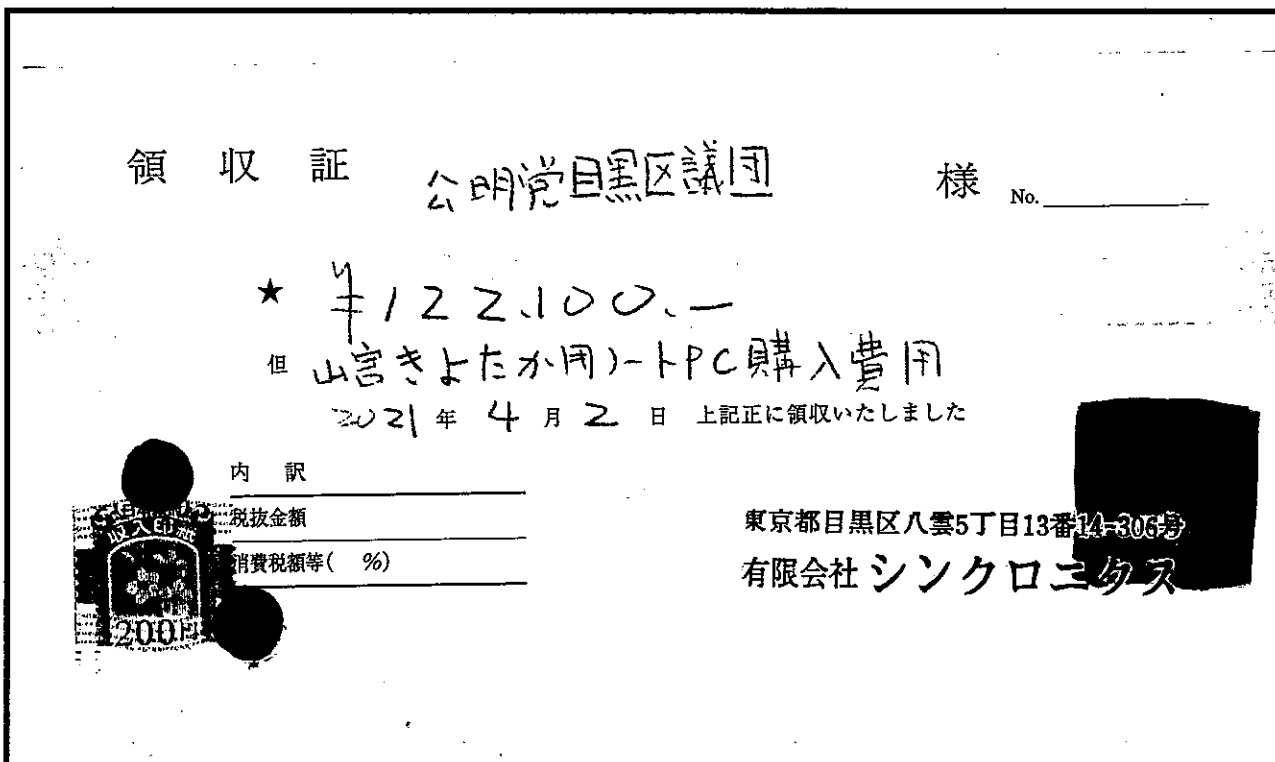 領収証 公明党目黒区議団 様 No.
★ ¥122,100.-
但 山宮きよたか用ノートPC購入費用
2021年4月2日 上記正に領収いたしました
内訳
税抜金額
消費税額等( %)
収入印紙
200円
東京都目黒区八雲5丁目13番14-306号
有限会社シンクロニタス